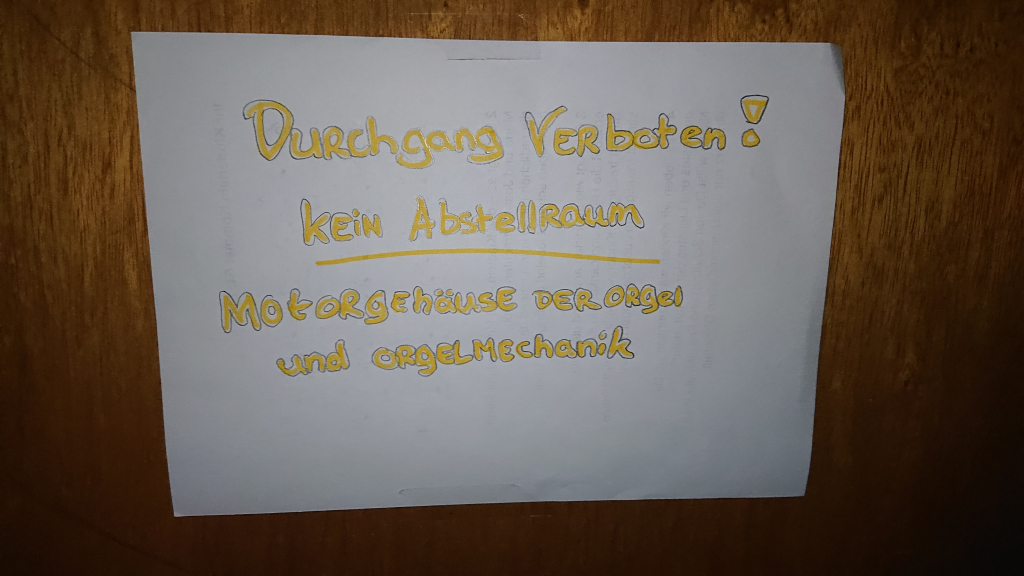 Durchgang Verboten!
kein Abstellraum
Motorgehäuse der Orgel
und Orgelmechanik